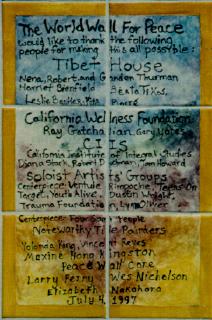 The World Wall For Peace
would like to thank the following
people for making this all possyble:
Tibet House
Nena, Robert, and Gandon Thurman
Harriet Bienfield Beata Tikos,
Leslie
California Wellness Foundation
Ray Gatchalian, Gary Yates
CIIS
California Institute of Integral Studies
Diana Stark, Robert Dorman, Tom Howard
Soloist Artists' Groups
Centerpiece: Rimpoche,
Target, Youth Alive, Dustin
Trauma Foundation
Centerpiece: People
Noteworthy Tile Painters
Yolanda King, Vincent Reyes
Maxine Hong Kingston
Peace Wall Core
Larry Ferry Wes Nichelson
Elizabeth Nakahara
July 4, 1997